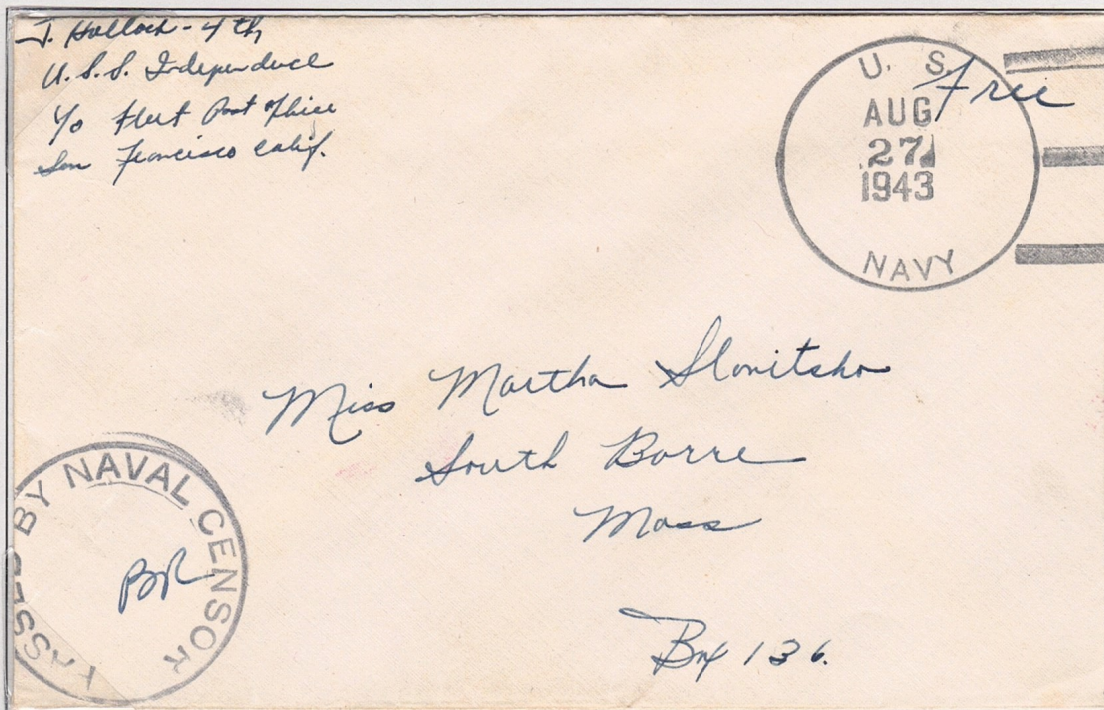 J. Hulloch - 4th
U.S.S. Independence
c/o Fleet Post Office
San Francisco Calif.
U. S.
AUG
27
1943
NAVY
Free
Miss Martha Slovitsho
South Barre
Mass
Box 136.
PASSED BY NAVAL CENSOR
BR